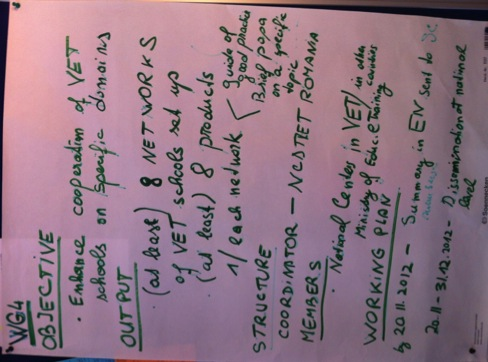 WG4
OBJECTIVE
· Enhance cooperation of VET
schools on specific domains
OUTPUT
· (at least) 8 NETWORKS
of VET schools set up
· (at least) 8 products
1/each network < Guide of
good practice
Brief paper
on a specific
topic
STRUCTURE
COORDINATOR – NCDTVET ROMANIA
MEMBERS
· National Centers in VET/
Ministry of Educ. & Training
in other
countries
WORKING PLAN
by 20.11.2012 – Summary in EN sent to
20.11 – 31.12.2012 – Dissemination at national
level